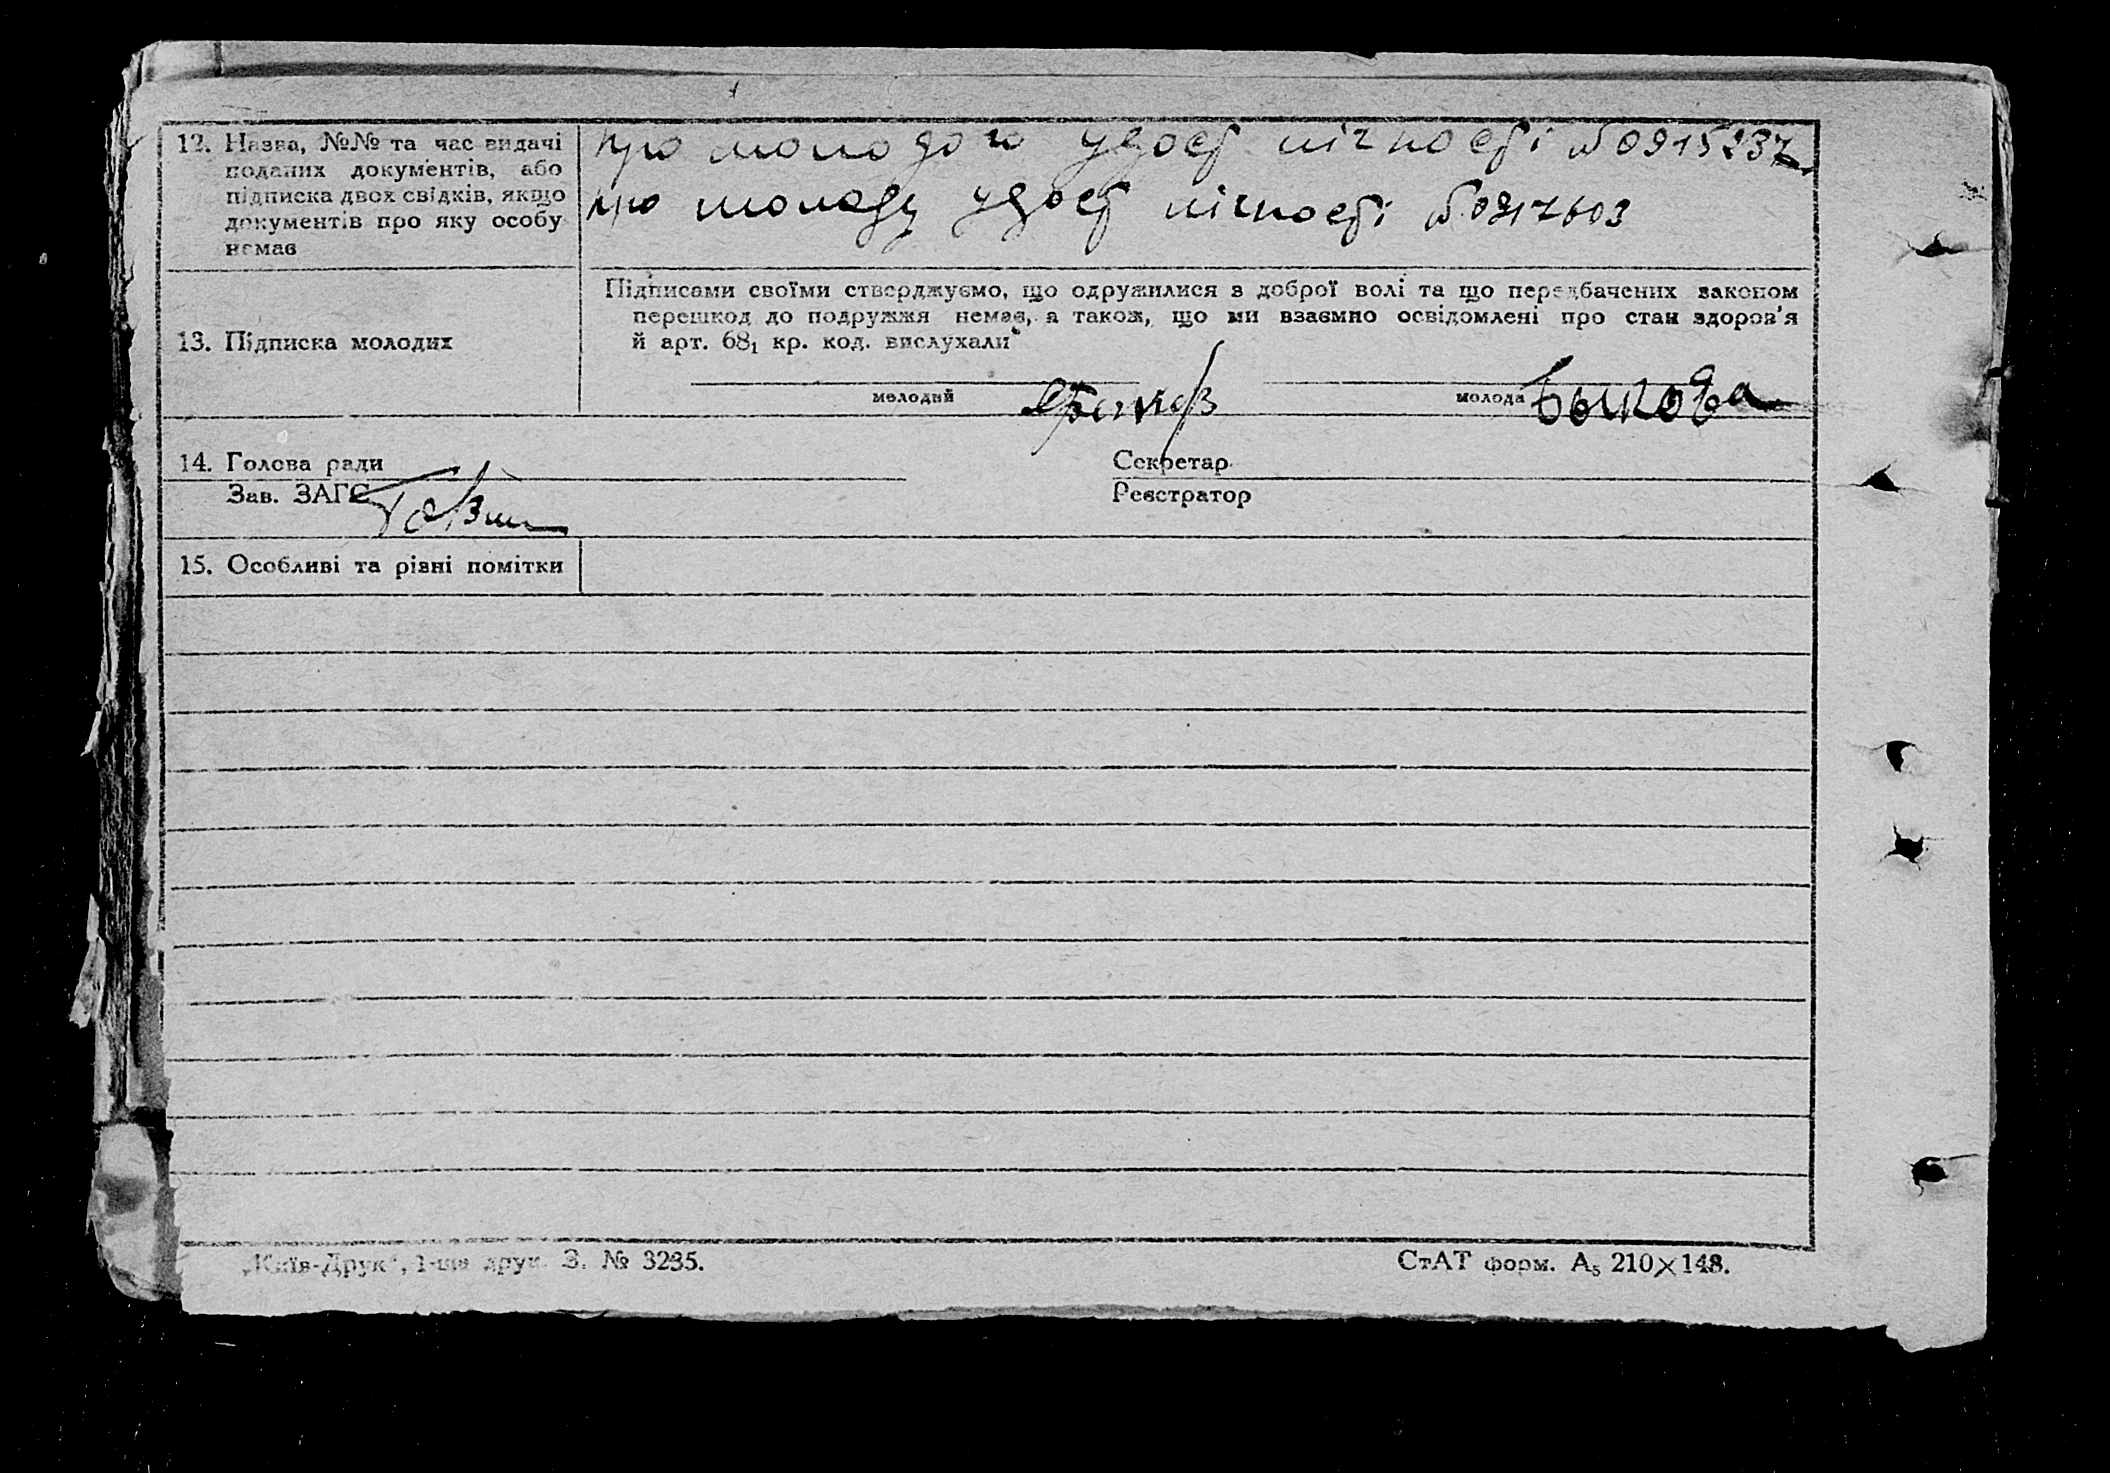 12. Назва, №№ та час видачі
поданих документів, або
підписка двох свідків, якщо
документів про яку особу
немає
про молодого удост лічності №0915237
про молоду удост лічності №0917603
13. Підписка молодих
Підписами своїми стверджуємо, що одружилися з доброї волі та що передбачених законом
перешкод до подружжя немає, а також, що ми взаємно освідомлені про стан здоров'я
й арт. 68₁ кр. код. вислухали
молодий
молода Быкова
14. Голова ради
Секретар
Зав. ЗАГС
Реєстратор
15. Особливі та різні помітки
„Київ-Друк“, 1-ша друк. З. № 3235.
СтАТ форм. А₅ 210×148.